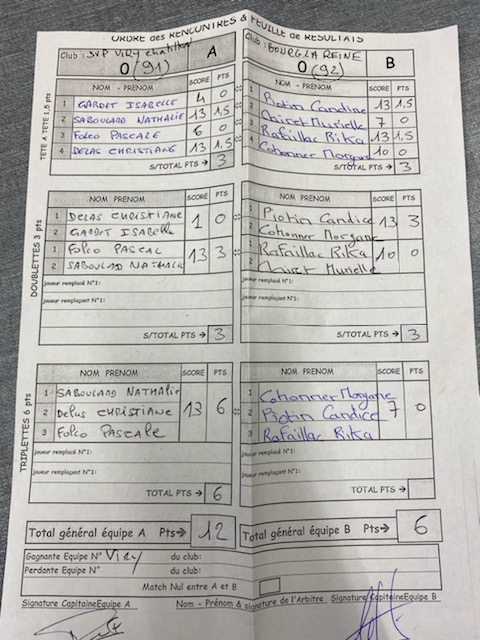 ORDRE des RENCONTRES & FEUILLE de RESULTATS
Club : SVP VIRY chatillon A
O (91)
Club : BOURG LA REINE B
O (92)
TETE A TETE 1,5 pts
NOM - PRENOM SCORE PTS
1 GARDET ISABELLE 4 0
2 SABOULARD NATHALIE 13 1,5
3 FOLCO PASCALE 6 0
4 DELAS CHRISTIANE 13 1,5
S/TOTAL PTS → 3
NOM - PRENOM SCORE PTS
1 Piotin Candice 13 1,5
2 Clairet Murielle 7 0
3 Rafaillac Rika 13 1,5
4 Cohonner Morgane 10 0
S/TOTAL PTS → 3
DOUBLETTES 3 pts
NOM PRENOM SCORE PTS
1 DELAS CHRISTIANE 1 0
2 GARDET ISABELLE
1 FOLCO PASCAL 13 3
2 SABOULARD NATHALIE
joueur remplacé N°1:
joueur remplaçant N°1:
S/TOTAL PTS → 3
NOM PRENOM SCORE PTS
1 Piotin Candice 13 3
2 Cohonner Morgane
1 Rafaillac Rika 10 0
2 Clairet Murielle
joueur remplacé N°1:
joueur remplaçant N°1:
S/TOTAL PTS → 3
TRIPLETTES 6 pts
NOM PRENOM SCORE PTS
1 SABOULARD NATHALIE
2 Delas CHRISTIANE 13 6
3 FOLCO PASCALE
joueur remplacé N°1:
joueur remplaçant N°1:
TOTAL PTS → 6
NOM PRENOM SCORE PTS
1 Cohonner Morgane
2 Piotin Candice 7 0
3 Rafaillac Rika
joueur remplacé N°1:
joueur remplaçant N°1:
TOTAL PTS →
Total général équipe A Pts→ 12
Total général équipe B Pts→ 6
Gagnante Equipe N° Viry du club:
Perdante Equipe N° du club:
Match Nul entre A et B
Signature CapitaineEquipe A Nom - Prénom & signature de l'Arbitre Signature CapitaineEquipe B